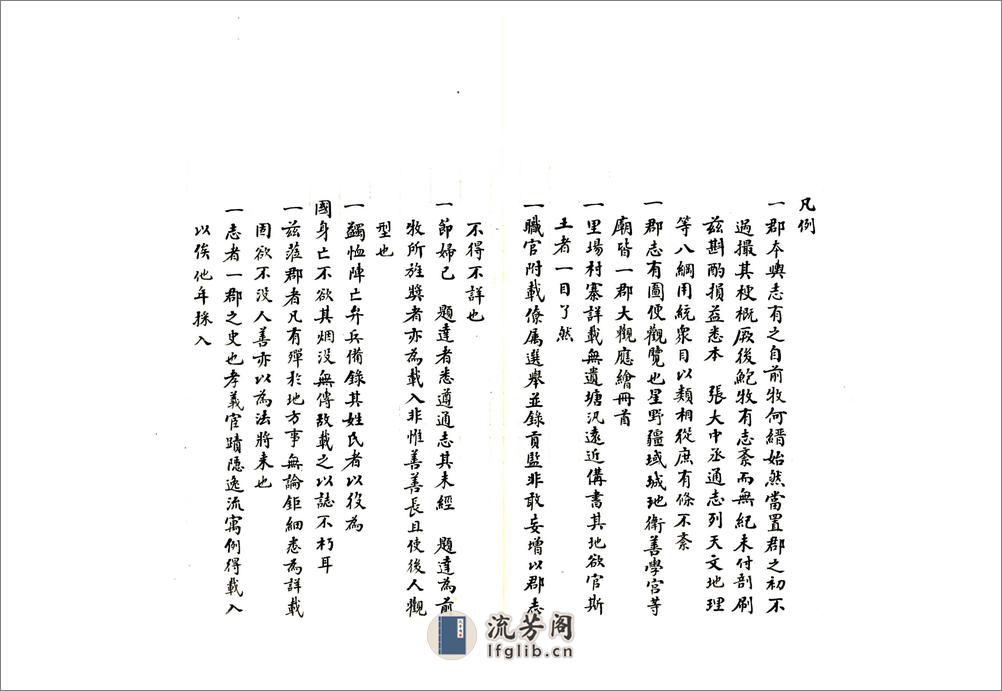 凡例
一郡本輿志有之自前牧何縉始然當置郡之初不
過撮其梗概厥後鮑牧有志紊而無紀未付剖刷
茲斟酌損益悉本 張大中丞通志列天文地理
等八綱用統衆目以類相從庶有條不紊
一郡志有圖便觀覽也星野疆域城池衛善學宮等
廟皆一郡大觀應繪冊首
一里場村寨詳載無遺塘汛遠近備書其地欲官斯
土者一目了然
一職官附載僚属選舉並錄貢監非敢妄增以郡志
不得不詳也
一節婦已 題達者悉遵通志其未經 題達為前
牧所旌獎者亦為載入非惟善善長且使後人觀
型也
一蠲恤陣亡弁兵備錄其姓氏者以役為
國身亡不欲其烟没無傳故載之以誌不朽耳
一茲蒞郡者凡有殫於地方事無論鉅細悉為詳載
固欲不没人善亦以為法將来也
一志者一郡之史也孝義宦蹟隐逸流寓例得載入
以俟他年採入
流芳阁
lfglib.cn